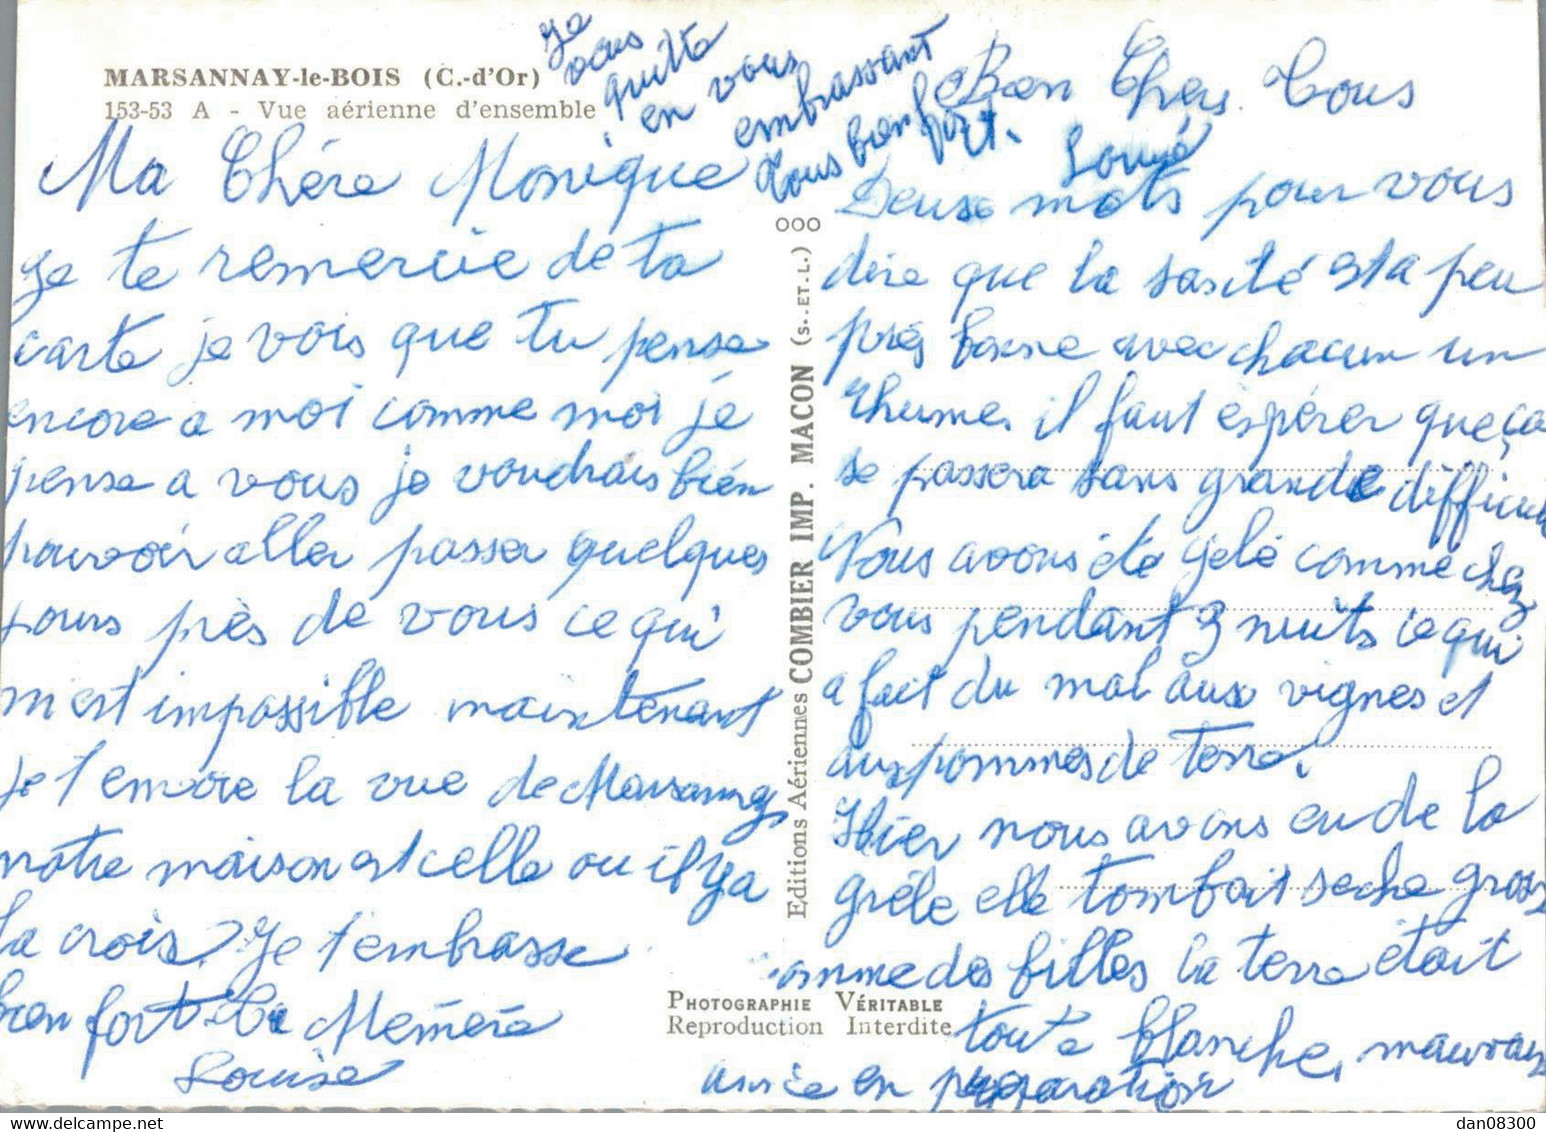 MARSANNAY-le-BOIS (C.-d'Or)
153-53 A - Vue aérienne d'ensemble
Ma Chére Monique
Je te remercie de ta
carte je vois que tu pense
encore a moi comme moi je
pense a vous je voudrais bien
pouvoir aller passer quelques
jours près de vous ce qui
m'est impossible maintenant
je t'envoie la vue de Marsannay
notre maison est celle ou il y a
la croix. Je t'embrasse
bien fort. Ta Mémère
Louise
Editions Aériennes COMBIER IMP. MACON (S.. ET. L.)
ooo
Bien Chers Tous
Deux mots pour vous
dire que la santé est a peu
près bonne avec chacun un
rhume. il faut éspérer que ça
se passera sans grande difficult
Nous avons été gelé comme chez
vous pendant 3 nuits ce qui
a fait du mal aux vignes et
aux pommes de terre.
Hier nous avons eu de la
grêle elle tombait seche gross
comme des billes la terre était
toute blanche, mauvais
année en préparation
Je
vous
quitte
en vous
embrassant
tous bien fort.
Louise
PHOTOGRAPHIE VÉRITABLE
Reproduction Interdite
dan08300